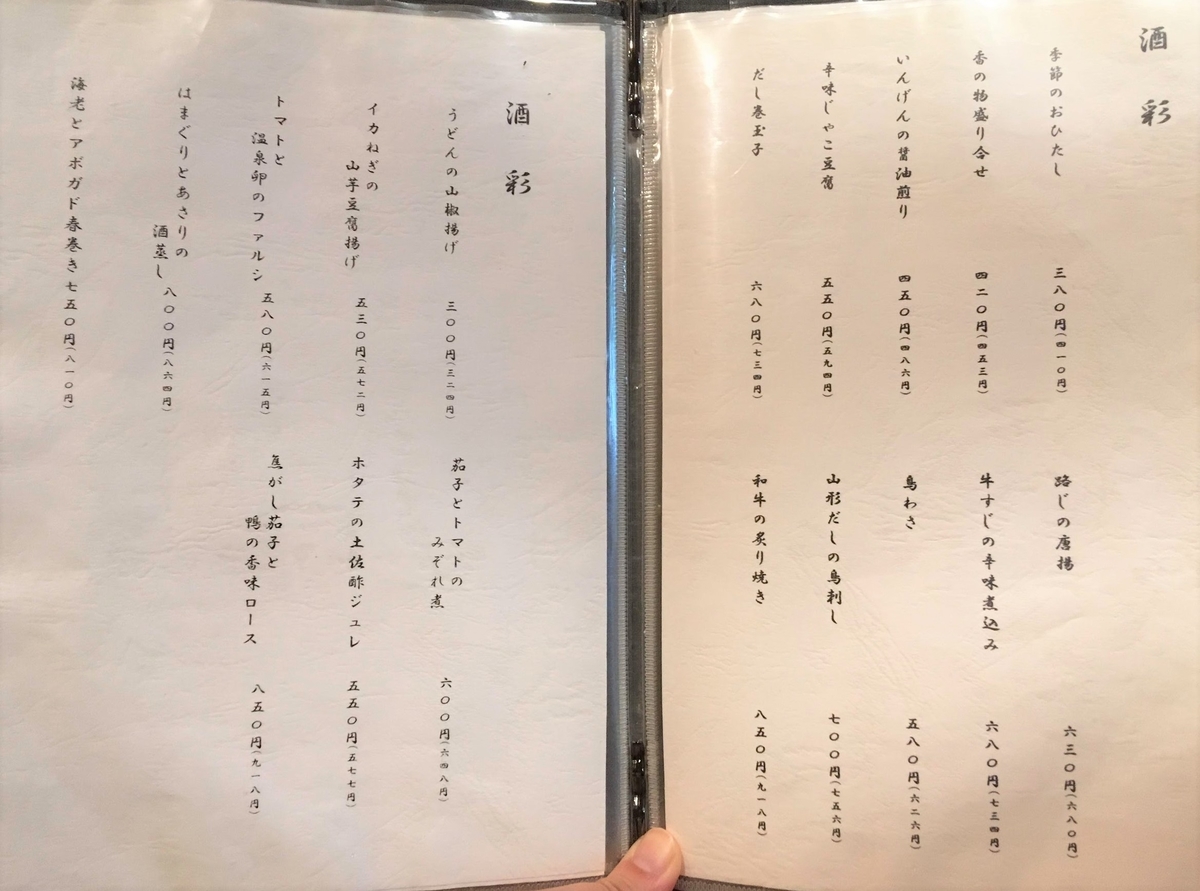 酒 彩
季節のおひたし 三八〇円(四一〇円)
香の物盛り合せ 四二〇円(四五三円)
いんげんの醤油煎り 四五〇円(四八六円)
辛味じゃこ豆腐 五五〇円(五九四円)
だし巻玉子 六八〇円(七三四円)
路じの唐揚 六三〇円(六八〇円)
牛すじの辛味煮込み 六八〇円(七三四円)
鳥わさ 五八〇円(六二六円)
山形だしの鳥刺し 七〇〇円(七五六円)
和牛の炙り焼き 八五〇円(九一八円)
酒 彩
うどんの山椒揚げ 三〇〇円(三二四円)
イカねぎの
山芋豆腐揚げ 五三〇円(五七二円)
トマトと
温泉卵のファルシ 五八〇円(六一五円)
はまぐりとあさりの
酒蒸し 八〇〇円(八六四円)
海老とアボガド春巻き 七五〇円(八一〇円)
茄子とトマトの
みぞれ煮 六〇〇円(六四八円)
ホタテの土佐酢ジュレ 五五〇円(五七七円)
焦がし茄子と
鴨の香味ロース 八五〇円(九一八円)